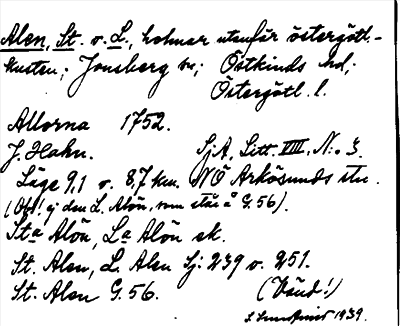 Alen, St. o. L., holmar utanför östergötl.-
kusten; Jonsberg sn; Östkinds hd;
Östergötl. l.
Allorna 1752.
J. Hahn. Sj.A, Litt. VIII, N:o 3.
Läge 9,1 o. 8,7 km. NÖ Arkösunds stn.
(Obs! ej den L. Alön, som står å G. 56).
Sta Alön, La Alön ek.
St. Alen, L. Alen Sj: 239 o. 251.
St. Alen G. 56. (Vänd!)
1939.